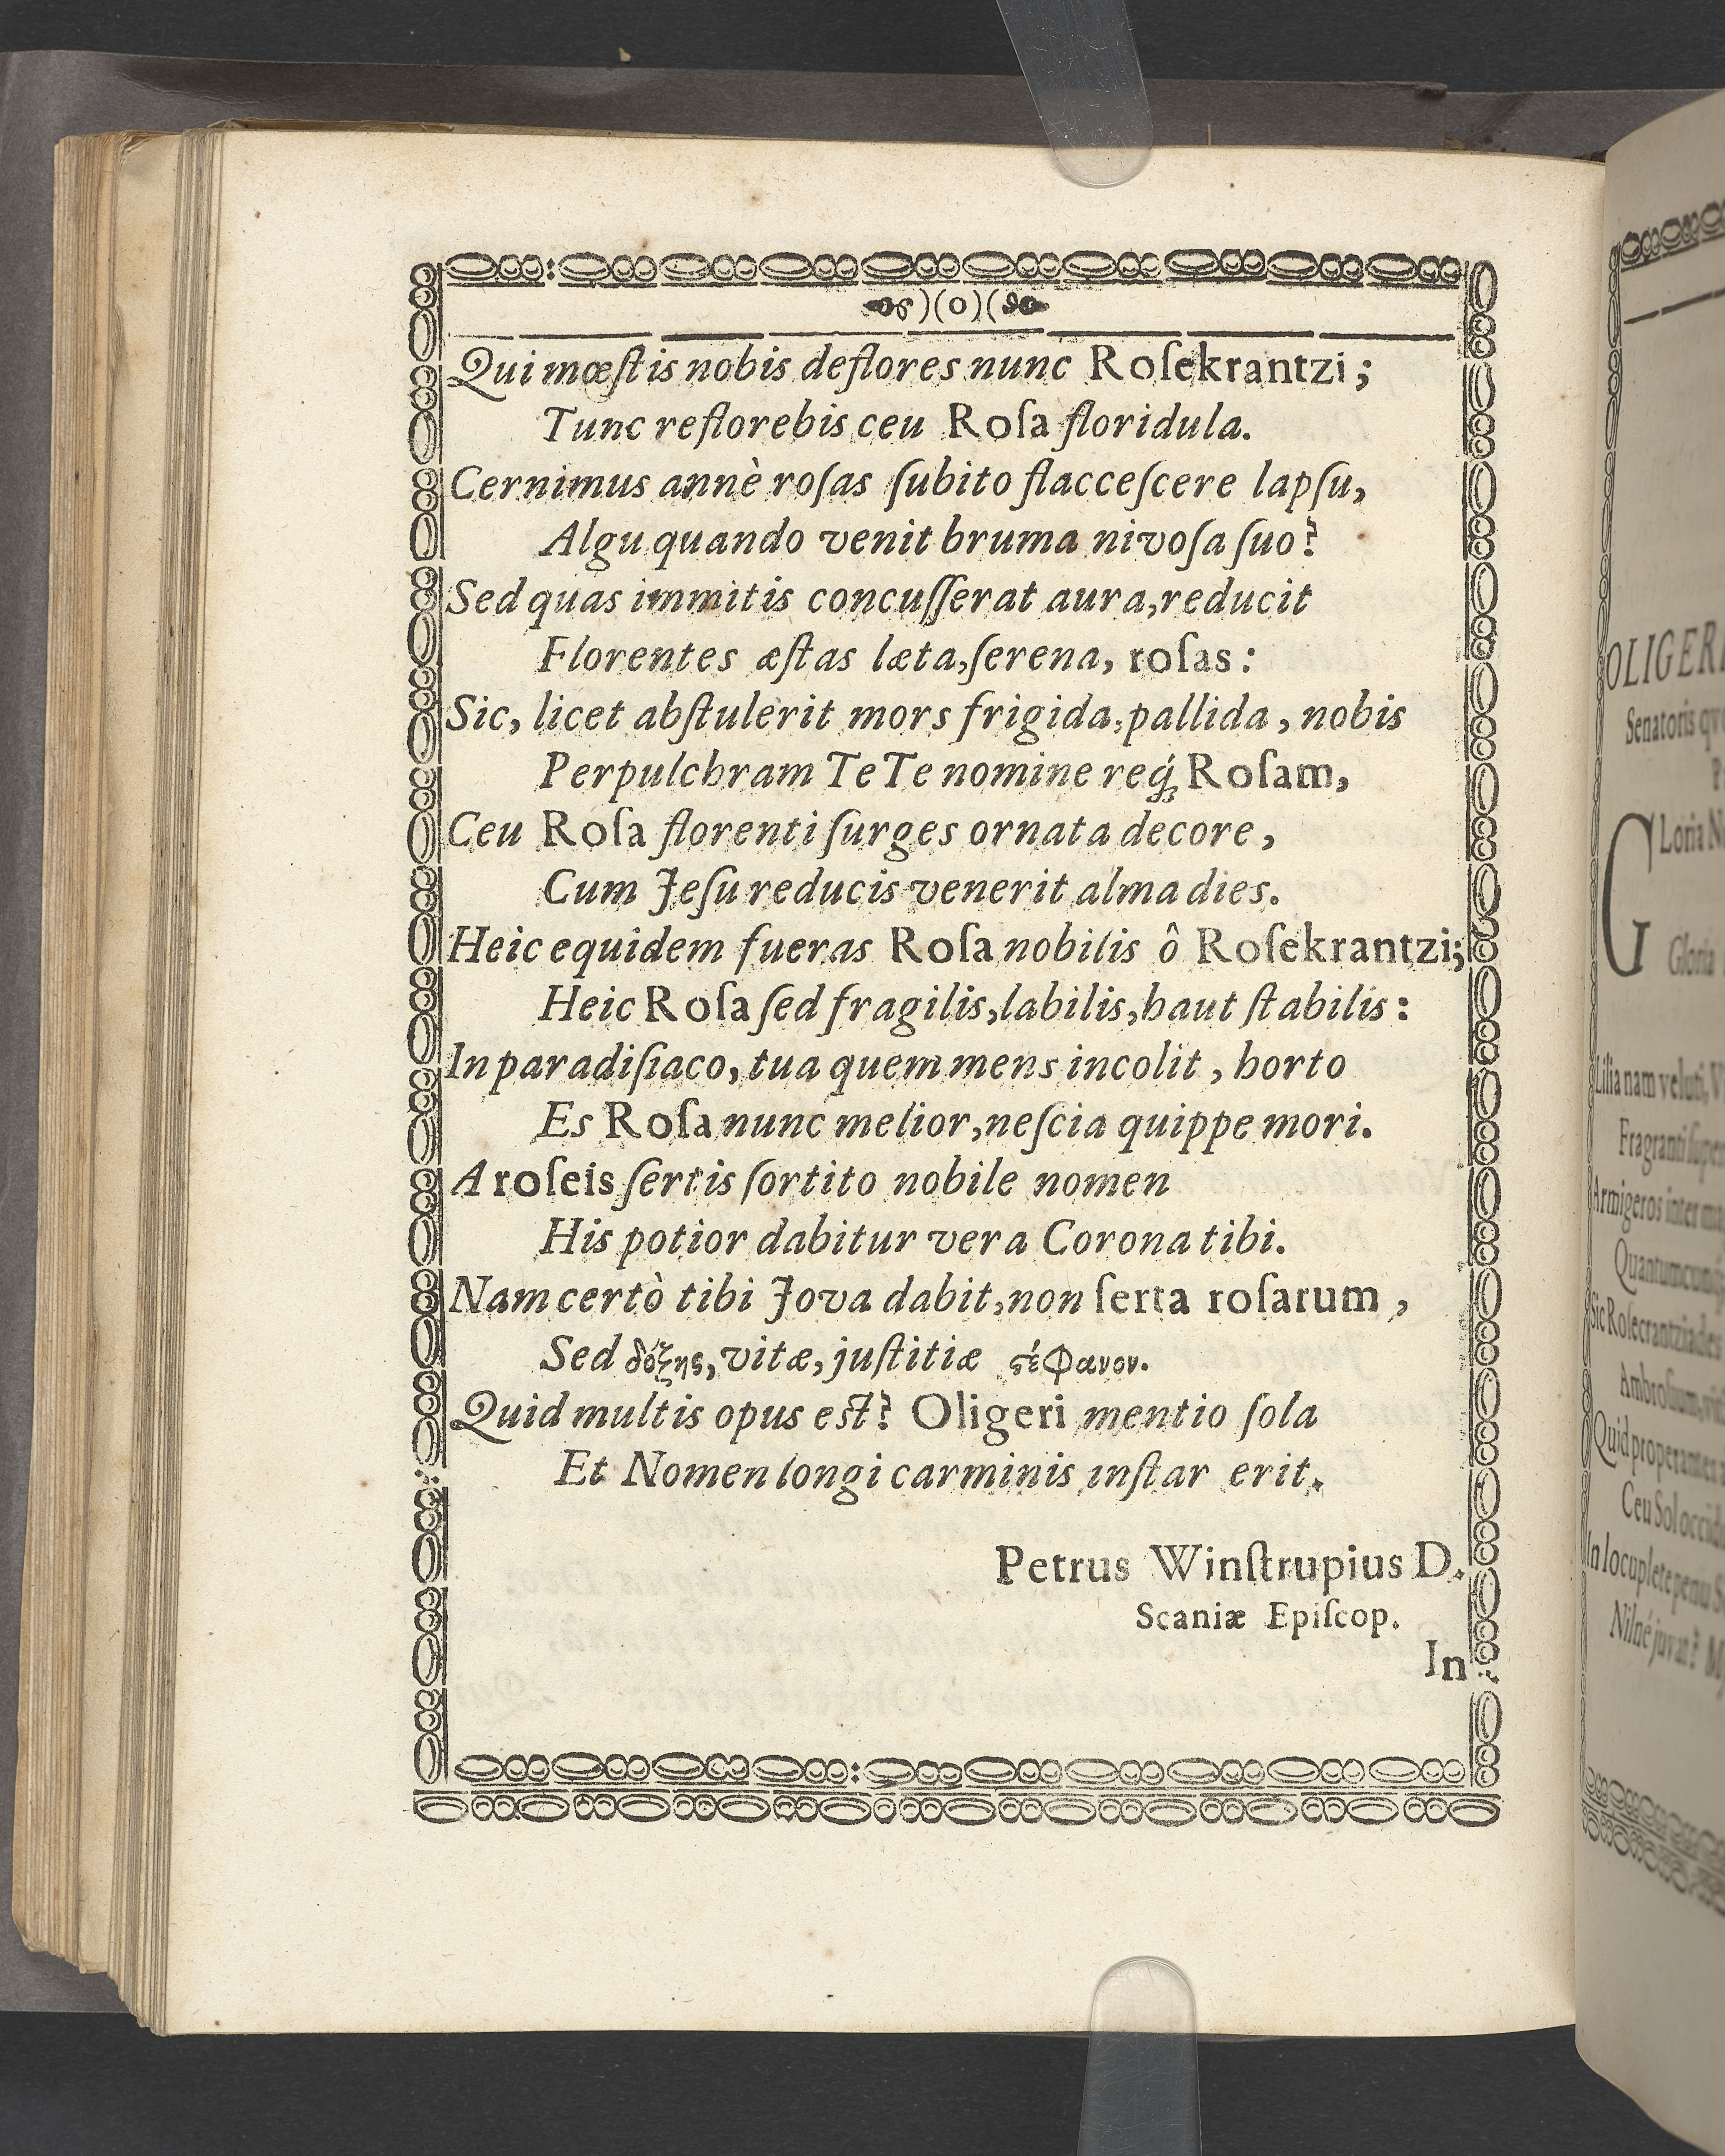 )(o)(
Qui mœſtis nobis deflores nunc Roſekrantzi;
Tunc reflorebis ceu Roſa floridula.
Cernimus annè roſas ſubito flacceſcere lapſu,
Algu quando venit bruma nivoſa ſuo?
Sed quas immitis concuſſerat aura, reducit
Florentes æſtas læta, ſerena, roſas:
Sic, licet abſtulerit mors frigida, pallida, nobis
Perpulchram Te Te nomine req́; Roſam,
Ceu Roſa florenti ſurges ornata decore,
Cum Jeſu reducis venerit alma dies.
Heic equidem fueras Roſa nobilis ô Roſekrantzi;
Heic Roſa ſed fragilis, labilis, haut ſtabilis:
In paradiſiaco, tua quem mens incolit, horto
Es Roſa nunc melior, neſcia quippe mori.
A roſeis ſertis ſortito nobile nomen
His potior dabitur vera Corona tibi.
Nam certò tibi Jova dabit, non ſerta roſarum,
Sed δόξης, vitæ, juſtitiæ ϛέφανον.
Quid multis opus eſt? Oligeri mentio ſola
Et Nomen longi carminis inſtar erit.
Petrus Winſtrupius D.
Scaniæ Epiſcop.
In
OLIGERI
Senatoris
GLoria
Gloria
Lilia nam veluti,
Fragranti
Armigeros inter
Sic Roſecrantziades
Quid properantes
Ceu Sol
In locuplete penu
Nil né juvat?